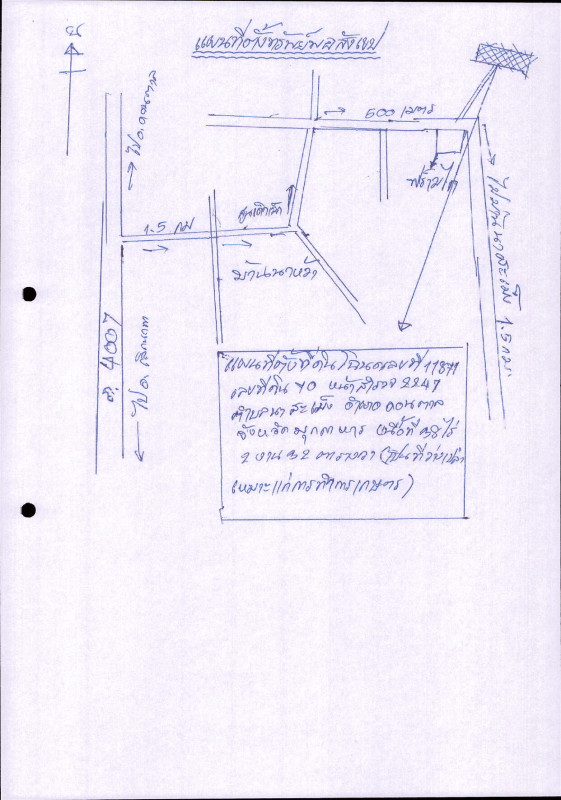 แผนที่ตั้งทรัพย์พอสังเขป
น
600 เมตร
ไป อ.ดอนตาล
ฟาร์มไก่
1.5 กม
ศูนย์เด็กเล็ก
บ้านนาหว้า
ไปบ้านนาสะเม็ง 1.5 กม.
4007
ไป อ.เลิงนกทา
แผนที่ตั้งที่ดิน โฉนดเลขที่ 11871
เลขที่ดิน 70 หน้าสำรวจ 2247
ตำบลนาสะเม็ง อำเภอดอนตาล
จังหวัดมุกดาหาร เนื้อที่ ไร่
2 งาน 32 ตารางวา (เป็นที่ว่างเปล่า
เหมาะแก่การทำการเกษตร)